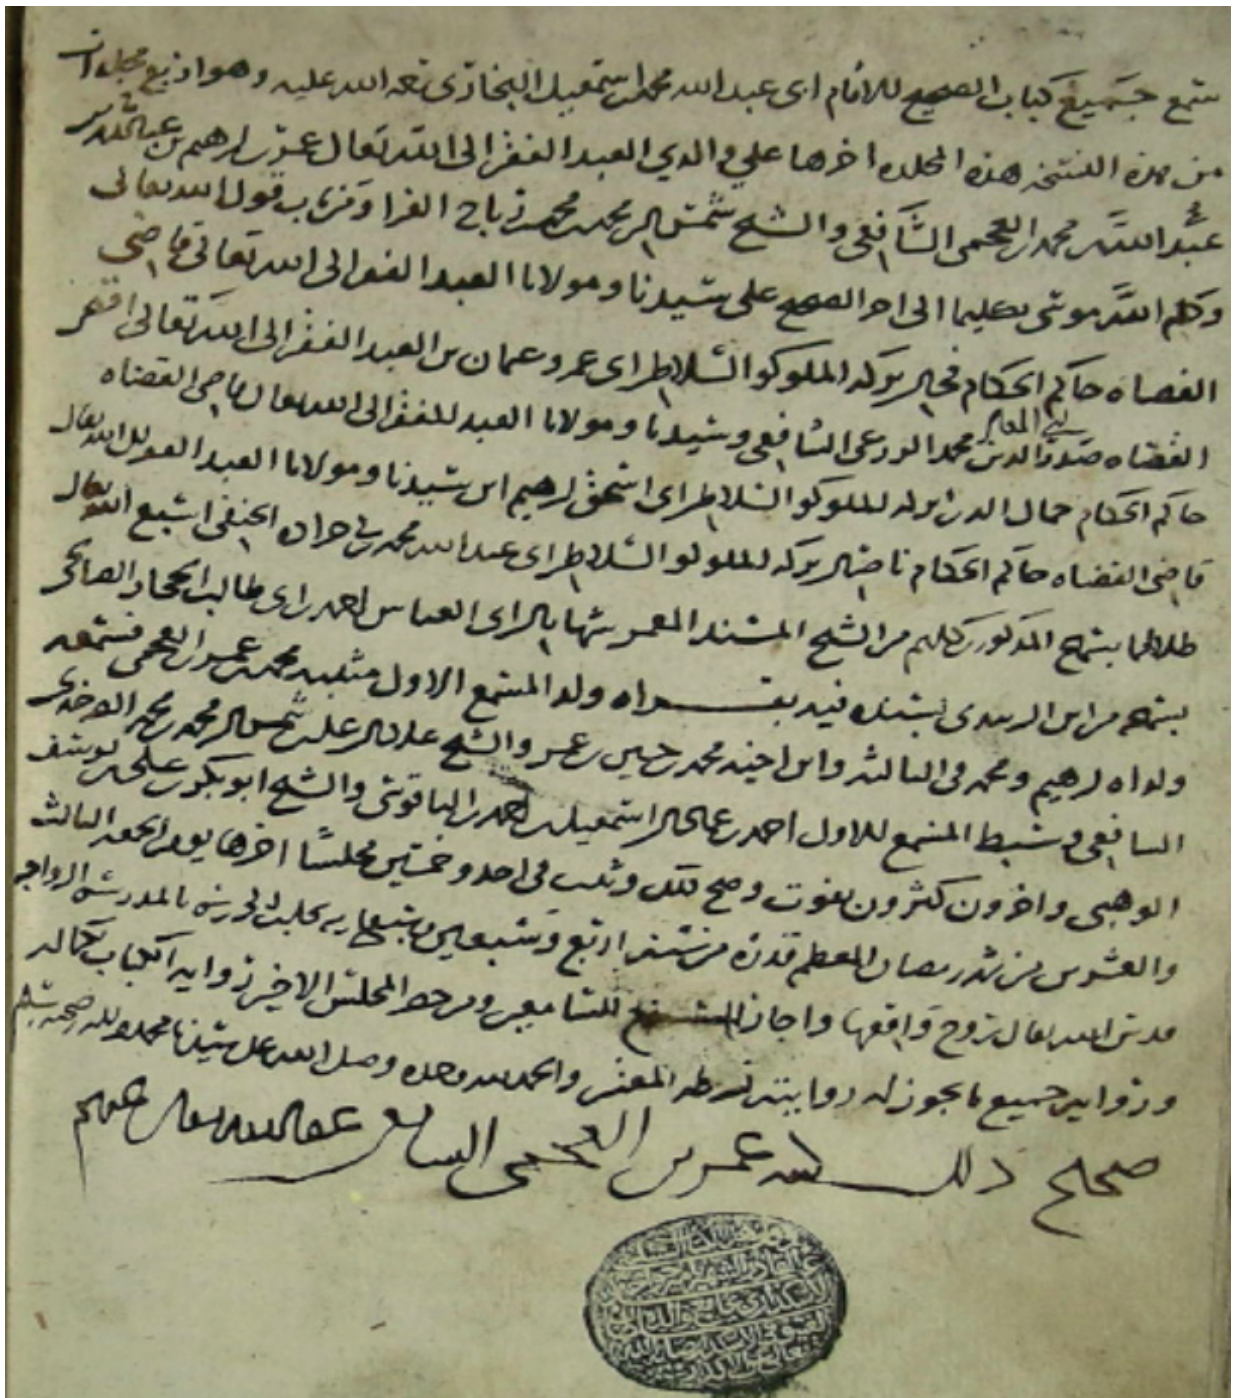 سمع جميع كتاب الصحيح للامام ابى عبد الله محمد بن اسمعيل البخارى رحمة الله عليه وهو اربع مجلدات
من هذه النسخة هذه المجلدة اخرها على والدي العبد الفقير الى الله تعالى عمر بن ابرهيم بن
عبد الله بن محمد بن العجمى الشافعى والشيخ شمس الدين محمد بن محمد بن رباح الفرا ومن باب قول الله تعالى
وكلم الله موسى تكليما الى اخر الصحيح على سيدنا ومولانا العبد الفقير الى الله تعالى قاضى
القضاه حاكم الحكام فخر الدين بركة الملوك والسلاطين ابى عمرو عثمان بن العبد الفقير الى الله تعالى اقضى
القضاه صدر الدين محمد الزرعى الشافعى وسيدنا ومولانا العبد الفقير الى الله تعالى قاضى القضاه
حاكم الحكام جمال الدين بركة الملوك والسلاطين ابى اسحق ابرهيم ابن سيدنا ومولانا العبد الفقير الى الله تعالى
قاضى القضاه حاكم الحكام ناصر الدين بركة الملوك والسلاطين ابى عبد الله محمد الحنفى اسبغ الله تعالى
ظلالهما بسماع المذكورين كلهم من الشيخ المسند المعمر شهاب الدين ابى العباس احمد بن ابى طالب الحجار الصالحى
بسماعه من ابن الزبيدى بسنده فيه بقراه ولد المسمع الاول مثبته محمد بن عمر بن العجمى فسمعه
ولداه ابرهيم ومحمد فى الثالثه وابن اخيه محمد بن حسين بن عمر والشيخ علا الدين على بن شمس الدين محمد بن محمد
الشافعى وسبط المسمع الاول احمد بن عماد الدين اسمعيل بن احمد بن الياقوتى والشيخ ابو بكر بن على بن يوسف
الوهبى واخرون كثيرون بفوت وصح ذلك وثبت فى احد وخمسين مجلسا اخرها يوم الجمعه الثالث
والعشرين من شهر رمضان المعظم قدره من سنة اربع وسبعين وسبعمايه بحلب المحروسة بالمدرسة الرواحيه
قدس الله تعالى روح واقفها واجاز المسمع للسامعين ومن حضر المجلس الاخير رواية الكتاب بكماله
وروايه جميع ما يجوز له روايته بشرطه المعتبر والحمد لله وحده وصلى الله على سيدنا محمد واله وصحبه وسلم
صحيح ذلك كتبه عمر بن العجمى الشافعى عفا الله تعالى عنهم